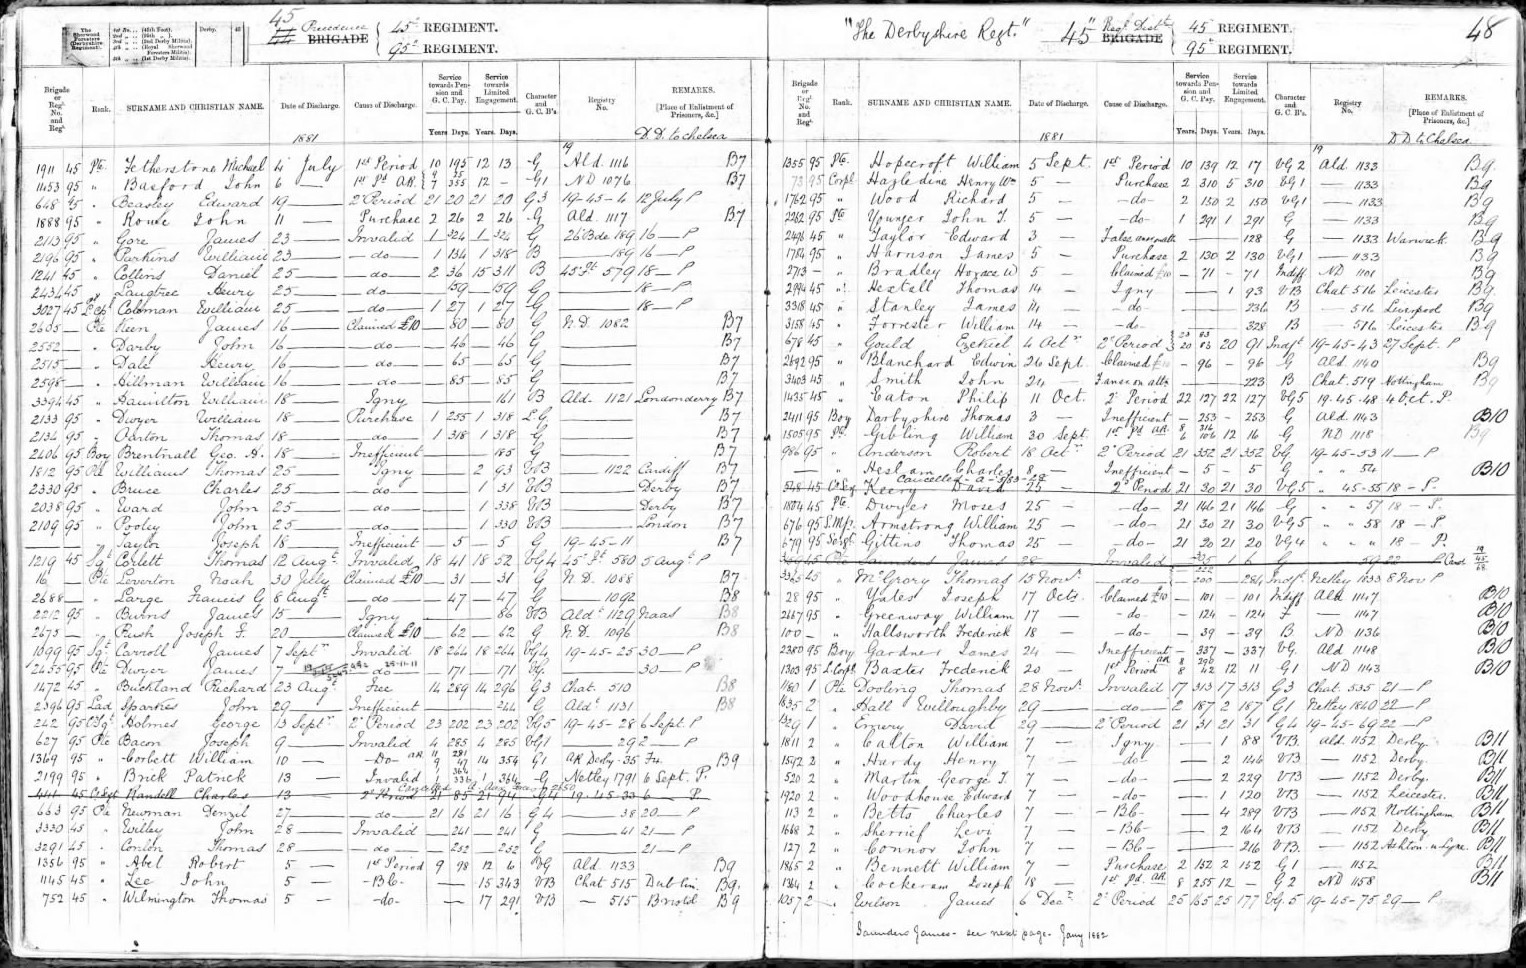 The Sherwood Foresters (Derbyshire Regiment). 1st Bn. (45th Foot). Derby. 45
2nd (95th)
3rd (2nd Derby Militia).
4th (Royal Sherwood Foresters Militia).
5th (1st Derby Militia).
45 Precedence 45th REGIMENT.
44 BRIGADE 95th REGIMENT.
Brigade or Regt. No. and Regt. Rank. SURNAME AND CHRISTIAN NAME. Date of Discharge. Cause of Discharge. Service towards Pension and G. C. Pay. Service towards Limited Engagement. Character and G. C. B's. Registry No. REMARKS. [Place of Enlistment of Prisoners, &c.]
Years. Days. Years. Days.
1881 19 D.D. to Chelsea
1911 45 Pte Fetherstone Michael 4 July 1st Period 10 195 12 13 G Ald. 1116 B7
1453 95 " Basford John 6 — 1st Pd AR. 7 355 12 — G1 ND 1076 B7
648 95 " Beasley Edward 19 — 2d Period 21 20 21 20 G3 19-45-4 12 July P
1888 95 " Rowe John 11 — Purchase 2 26 2 26 G Ald. 1117 B7
2113 95 " Gore James 23 — Invalid 1 324 1 324 G 26 Bde 189 16 — P
2196 95 " Parkins William 23 — do — 1 134 1 318 B — 189 16 — P
1241 45 " Collins Daniel 25 — do — 2 36 15 311 B 45 Dt 579 18 — P
2434 45 " Langtree Henry 25 — do — 159 — 159 G — 18 — P
3027 45 Coleman William 25 — do — 1 27 1 27 G — 18 — P
2605 — Pte Keen James 16 — Claimed £10 — 80 — 80 G N.D. 1082 B7
2552 — " Darby John 16 — do — 46 — 46 G — B7
2515 — " Dale Henry 16 — do — 65 — 65 G — B7
2598 — " Hillman William 16 — do — 85 — 85 G — B7
3394 45 " Hamilton William 18 — Igny — 161 B Ald. 1121 Londonderry B7
2133 95 " Dwyer William 18 — Purchase 1 255 1 318 L G — B7
2134 95 " Oarton Thomas 18 — do — 1 318 1 318 G — B7
2406 95 Boy Brentnall Geo. A. 18 — Inefficient — 185 G — B7
1812 95 Pte Williams Thomas 25 — Igny — 2 93 VB — 1122 Cardiff B7
2330 95 " Bruce Charles 25 — do — 1 31 VB — Derby B7
2038 95 " Ward John 25 — do — 1 338 VB — Derby B7
2109 95 " Pooley John 25 — do — 1 330 VB — London B7
— " Taylor Joseph 18 — Inefficient — 5 — 5 G 19-45-11 B7
1219 45 Sgt Corlett Thomas 12 Augt Invalid 18 41 18 52 VG4 45 Dt 580 5 Augt P
16 — Pte Leverton Noah 30 July Claimed £10 — 31 — 31 G N.D. 1088 B7
2688 — " Large Francis G 8 Augt do — 47 — 47 G — 1092 B8
2212 95 " Burns James 15 — Igny — 86 VB Aldt 1129 Naas B8
2675 — " Rush Joseph F. 20 — Claimed £10 — 62 — 62 G N.D. 1096 B8
1099 95 Sgt Carroll James 7 Septr Invalid 18 264 18 264 VG4 19-45-25 30 — P
2455 95 Pte Dwyer James 7 — do — 171 — 171 — 30 — P
1472 45 " Buckland Richard 23 Aug Free 14 289 14 296 G3 Chat. 510 B8
2396 95 Lad Sparkes John 29 — Inefficient — 244 G Aldt 1131 B8
242 95 Holmes George 13 Septr 2d Period 23 202 23 202 VG5 19-45-28 6 Septr P
627 95 Pte Bacon Joseph 9 — Invalid 4 285 4 285 VG1 — 29 2 — P
1369 95 " Corbett William 10 — Do — AR 9 14 354 G1 AR Derby 35 B9
2199 95 " Brick Patrick 13 — Invalid 1 336 1 364 G Netley 1791 6 Sept. P.
444 45 Randell Charles 13 — 2d Period 21 85 21 94 G4 19-45-33 6 — P
663 95 Pte Newman Denzil 27 — do — 21 16 21 16 G4 — 38 20 — P
3330 45 " Willey John 28 — Invalid — 241 — 241 G — 41 21 — P
3291 45 " Conlon Thomas 28 — do — 252 — 252 G — 21 — P
1356 95 " Abel Robert 5 — 1st Period 9 98 12 6 VG Ald. 1133 B9
1145 45 " Lee John 5 — Bb — 15 343 VB Chat 515 Dublin. B9
752 45 " Wilmington Thomas 5 — do — 17 291 VB — 515 Bristol B9
"The Derbyshire Regt." 45th Regl Distt 45 REGIMENT. 48
BRIGADE 95th REGIMENT.
Brigade or Regt. No. and Regt. Rank. SURNAME AND CHRISTIAN NAME. Date of Discharge. Cause of Discharge. Service towards Pension and G. C. Pay. Service towards Limited Engagement. Character and G. C. B's. Registry No. REMARKS. [Place of Enlistment of Prisoners, &c.]
Years. Days. Years. Days.
1881 19 D.D to Chelsea
1355 95 Pte. Hopcroft William 5 Sept. 1st Period 10 139 12 17 VG 2 Ald. 1133 B9
73 95 Corpl Hazledine Henry Wm 5 — Purchase 2 310 5 310 VG1 — 1133 B9
1762 95 " Wood Richard 5 — do — 2 150 2 150 VG1 — 1133 B9
2262 95 Pte Younger John T. 5 — do — 1 291 1 291 G — 1133 B9
2496 45 " Taylor Edward 3 — False answer — 128 G — 1133 Warwick B9
1784 95 " Harrison James 5 — Purchase 2 130 2 130 VG1 — 1133 B9
2713 — " Bradley Horace W 5 — Claimed £10 — 71 — 71 Indiff ND 1101 B9
2994 45 " Hextall Thomas 14 — Igny — 1 93 VB Chat 516 Leicester B9
3318 45 " Stanley James 14 — do — 236 B — 516 Liverpool B9
3158 45 " Forrester William 14 — do — 328 B — 516 Leicester B9
678 45 " Gould Ezekiel 4 Octr 2d Period 20 83 20 91 Indft 19-45-43 27 Sept. P
2692 95 " Blanchard Edwin 26 Sept. Claimed £10 — 96 — 96 G Ald 1140 B9
3403 45 " Smith John 24 — — 223 B Chat. 519 Nottingham B9
1435 45 " Eaton Philip 11 Oct. 2d Period 22 127 22 127 VG5 19-45-48 4 Oct. P.
2411 95 Boy Darbyshire Thomas 3 — Inefficient — 253 — 253 G Ald. 1143 B10
1505 95 Pte. Gibling William 30 Sept. 1st Pd AR 6 106 12 16 G ND 1118 B9
986 95 " Anderson Robert 18 Octr 2d Period 21 352 21 352 VG. 19-45-53 11 — P
— " Heslam Charles 8 — Inefficient — 5 — 5 G " " 54 B10
548 45 Keery David 25 — 2d Period 21 30 21 30 VG5 " 45-55 18 — P.
1804 45 Pte. Dwyer Moses 25 — do — 21 146 21 146 G " " 57 18 — P.
676 95 Armstrong William 25 — do — 21 30 21 30 VG5 " " 58 18 — P.
679 95 Sergt Gittins Thomas 25 — do — 21 20 21 20 VG4 " " " 18 — P.
45 Pte Saunders James 28 — Invalid 1 6 G 59 22 — P
3365 45 " McGrory Thomas 15 Novr — do — 200 — 284 Indft Netley 1833 8 Nov P
28 95 " Yates Joseph 17 Octr Claimed £10 — 101 — 101 Indiff Ald 1147 B10
2667 95 " Greenway William 17 — do — 124 — 124 F — 1147 B10
100 — " Hallsworth Frederick 18 — do — 39 — 39 B ND 1136 B10
2380 95 Boy Gardner James 24 — Inefficient — 337 — 337 VG Ald 1148 B10
1303 95 L.Corpl Baxter Frederick 20 — 1st Period AR 8 42 12 11 G1 ND 1143 B10
1180 1 Pte Dooling Thomas 28 Novr Invalid 17 313 17 313 G3 Chat. 535 21 — P
1835 2 " Hall Willoughby 29 — do — 2 187 2 187 G1 Netley 1840 22 — P
1329 1 " Emery David 29 — 2d Period 21 31 21 31 G4 19-45-69 22 — P
1811 2 " Calton William 7 — Igny — 1 88 VB. Ald. 1152 Derby. B11
1512 2 " Hardy Henry 7 — do — 2 146 VB — 1152 Derby. B11
520 2 " Martin George T. 7 — do — 2 229 VB — 1152 Derby. B11
1920 2 " Woodhouse Edward 7 — do — 1 120 VB — 1152 Leicester. B11
113 2 " Betts Charles 7 — Bb — 4 289 VB — 1152 Nottingham B11
1668 2 " Sherrief Levi 7 — Bb — 2 164 VB — 1152 Derby B11
127 2 " Connor John 7 — Bb — 216 VB. — 1152 Ashton-u-Lyne. B11
1865 2 " Bennett William 7 — Purchase 2 152 2 152 G1 — 1152 B11
1364 2 " Cockeram Joseph 18 — 1st Pd. AR. 8 255 12 — G 2 ND 1158 B11
1057 2 " Wilson James 6 Decr 2d Period 25 165 25 177 VG.5 19-45-75 29 — P
Saunders James - see next page. Jany 1882